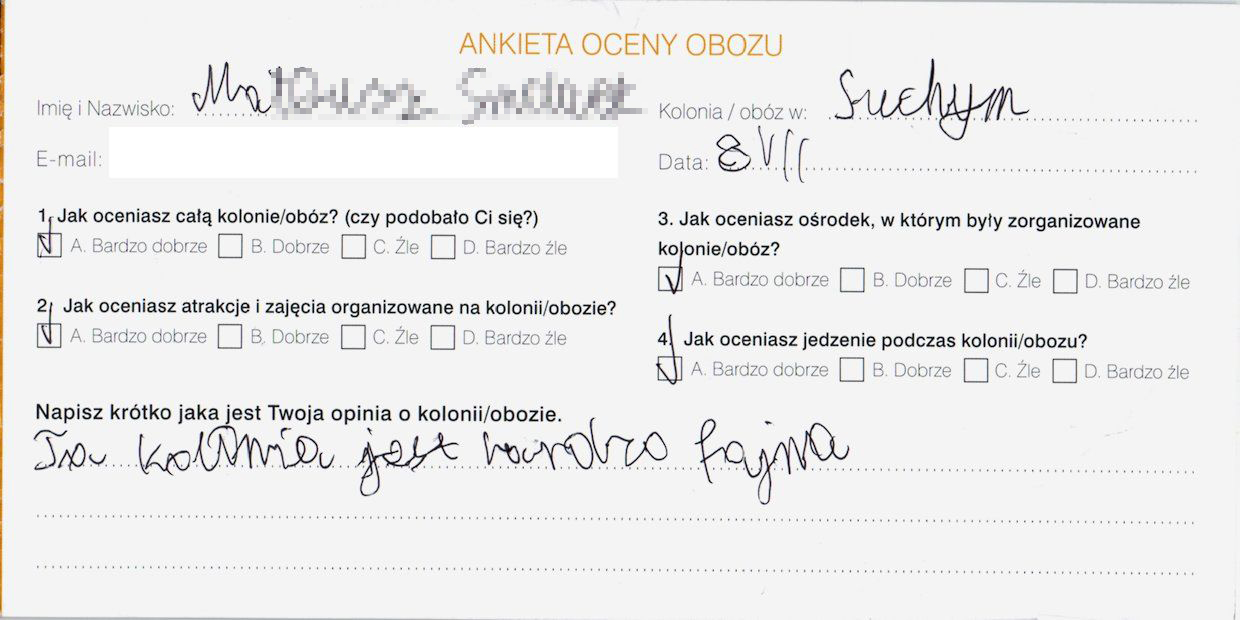 ANKIETA OCENY OBOZU
Imię i Nazwisko:
Kolonia / obóz w: Suchym
E-mail:
Data: 8 VII
1. Jak oceniasz całą kolonie/obóz? (czy podobało Ci się?)
A. Bardzo dobrze B. Dobrze C. Źle D. Bardzo źle
2. Jak oceniasz atrakcje i zajęcia organizowane na kolonii/obozie?
A. Bardzo dobrze B. Dobrze C. Źle D. Bardzo źle
3. Jak oceniasz ośrodek, w którym były zorganizowane
kolonie/obóz?
A. Bardzo dobrze B. Dobrze C. Źle D. Bardzo źle
4. Jak oceniasz jedzenie podczas kolonii/obozu?
A. Bardzo dobrze B. Dobrze C. Źle D. Bardzo źle
Napisz krótko jaka jest Twoja opinia o kolonii/obozie.
Ta kolonia jest bardzo fajna